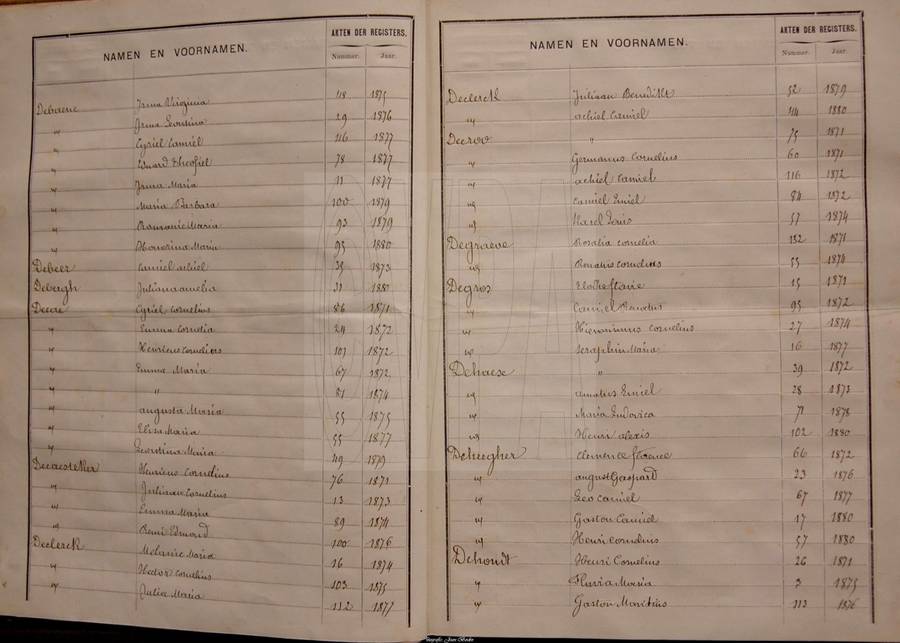 NAMEN EN VOORNAMEN. AKTEN DER REGISTERS.
Nummer. Jaar.
Debaene Irma Virginia 48 1875
" Irma Leontina 29 1876
" Cyriel Camiel 46 1877
" Eduard Theofiel 78 1877
" Irma Maria 11 1877
" Maria Barbara 100 1879
" Romanie Maria 93 1879
" Honorina Maria 93 1880
Debeer Camiel achiel 35 1873
Debergh Juliana amelia 31 1881
Decre Cyriel Cornelius 86 1871
" Emma Cornelia 24 1872
" Henricus Cornelius 101 1872
" Emma Maria 67 1872
" " 21 1874
" augusta Maria 55 1875
" Elisa Maria 55 1877
" Leontina Maria 49 1879
Deceuster Henricus Cornelius 76 1871
" Juliaan Cornelius 13 1873
" Emma Maria 89 1874
" Remi Edmond 100 1876
Declerck Melanie Maria 16 1874
" Hector Cornelius 103 1875
" Julia Maria 112 1877
NAMEN EN VOORNAMEN. AKTEN DER REGISTERS.
Nummer. Jaar.
Declerck Juliaan Benedikt 52 1879
" achiel Camiel 114 1880
Decroo " 75 1871
" Germanus Cornelius 60 1871
" achiel Camiel 116 1872
" Camiel Emiel 84 1872
" Karel Louis 57 1874
Degraeve Rosalia Cornelia 132 1871
" Renatus Cornelius 55 1874
Degros 15 1871
" Camiel Renatus 95 1872
" Hieronimus Cornelius 27 1874
" Seraphin Maria 16 1877
Dehaese " 39 1872
" amatus Emiel 28 1873
" Maria Ludovica 71 1878
" Henri alexis 102 1880
Deheegher Clemence florence 66 1872
" august Gaspard 23 1876
" Leo Camiel 67 1877
" Gaston Camiel 17 1880
" Henri Cornelius 57 1880
Dehondt Henri Cornelius 26 1871
" Flavia Maria 3 1875
" Gaston Maritius 113 1876